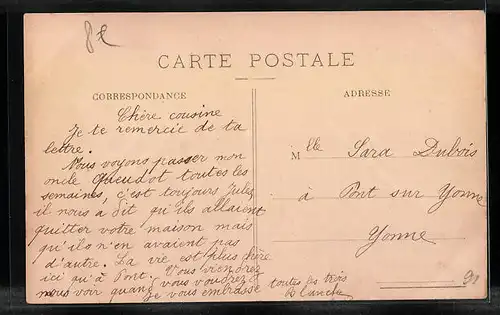 8 €
CARTE POSTALE
CORRESPONDANCE
ADRESSE
Chère cousine
Je te remercie de ta
lettre.
Nous voyons passer mon
oncle Queudot toutes les
semaines, c'est toujours Jules
il nous a dit qu'ils allaient
quitter votre maison mais
qu'ils n'en avaient pas
d'autre. La vie est plus chère
ici qu'à Pont. Vous viendrez
nous voir quang vous voudrez
Je vous embrasse toutes les trois
Blanche
Mlle Sara Dubois
à Pont sur Yonne
Yonne